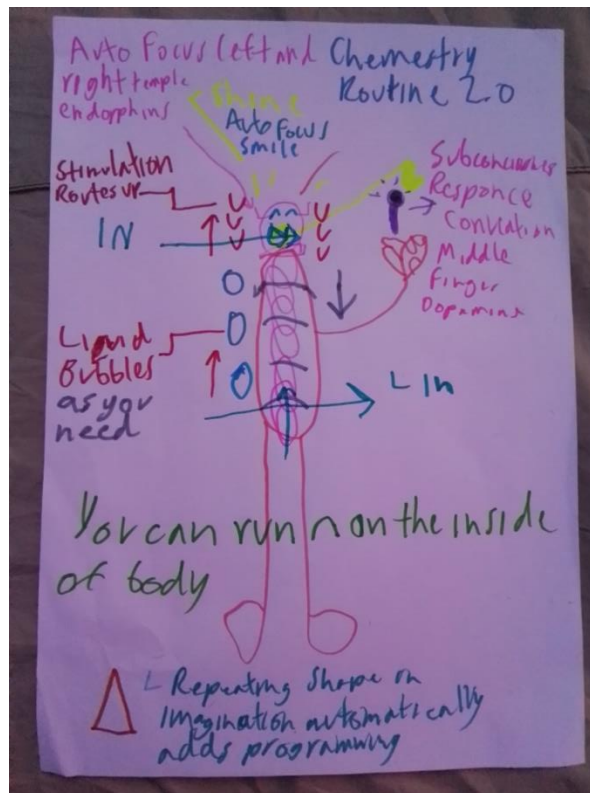 Auto Focus Left and
right temple
endorphins
Chemestry
Routine 2.0
Shine
Auto Focus
Smile
Stimulation
Routes up
IN
Liquid
Bubbles
as you
need
Responce
Middle
Finger
Dopamine
L In
You can run n on the inside
of body
L Repeating Shape on
imagination automatically
adds programming